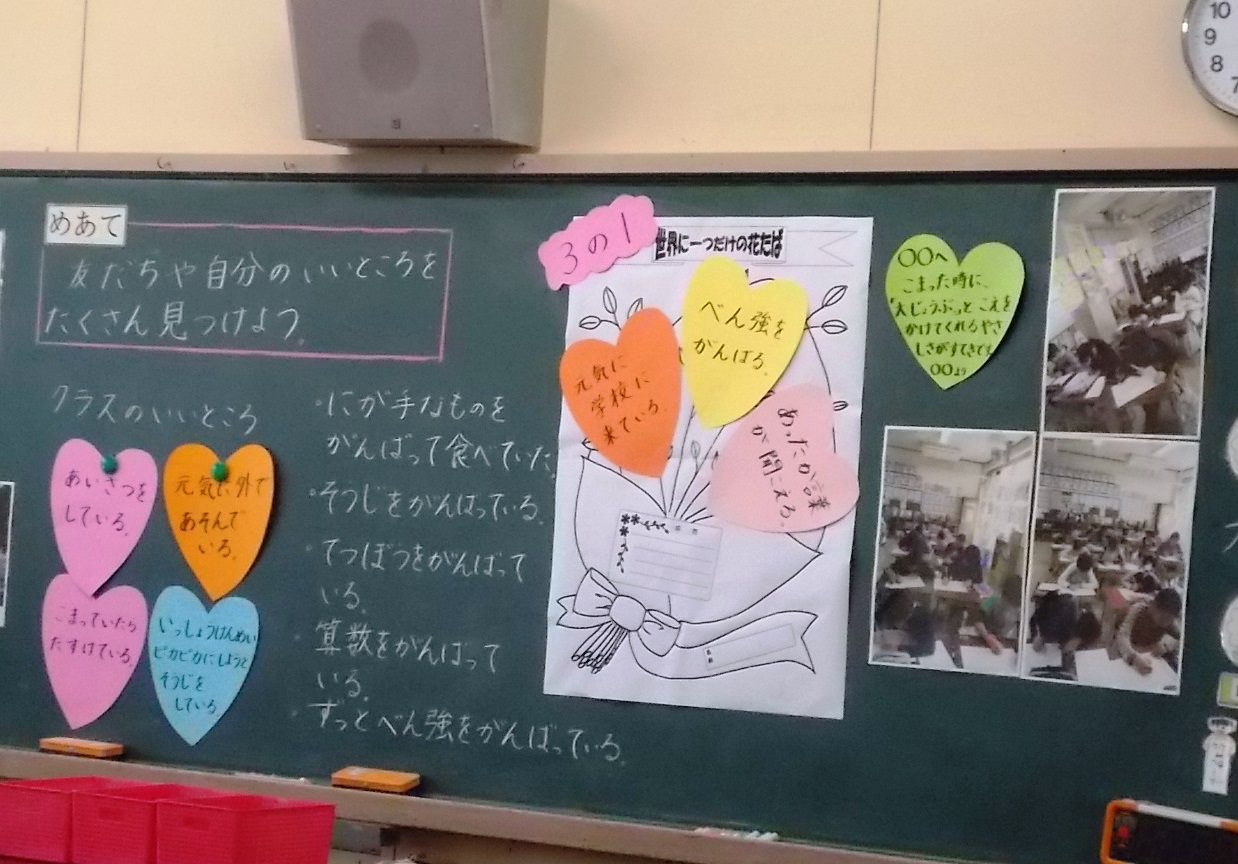 めあて
友だちや自分のいいところを
たくさん見つけよう。
クラスのいいところ
あいさつを
している。
元気に外で
あそんで
いる。
こまっていたら
たすけている。
いっしょうけんめい
ピカピカにしようと
そうじを
している。
・にが手なものを
がんばって食べていた。
・そうじをがんばっている。
・てつぼうをがんばって
いる。
・算数をがんばって
いる。
・ずっとべん強をがんばっている。
3の1
世界に一つだけの花たば
元気に
学校に
来ている。
べん強を
がんばる。
あったか言葉
が聞こえる。
〇〇へ
こまった時に、
「大じょうぶ」とこえを
かけてくれるやさ
しさがすてきです
〇〇より
10
9
8
7